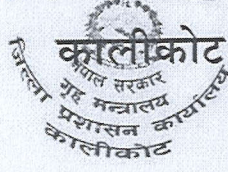 कालीकोट
नेपाल सरकार
गृह मन्त्रालय
जिल्ला प्रशासन कार्यालय
कालीकोट